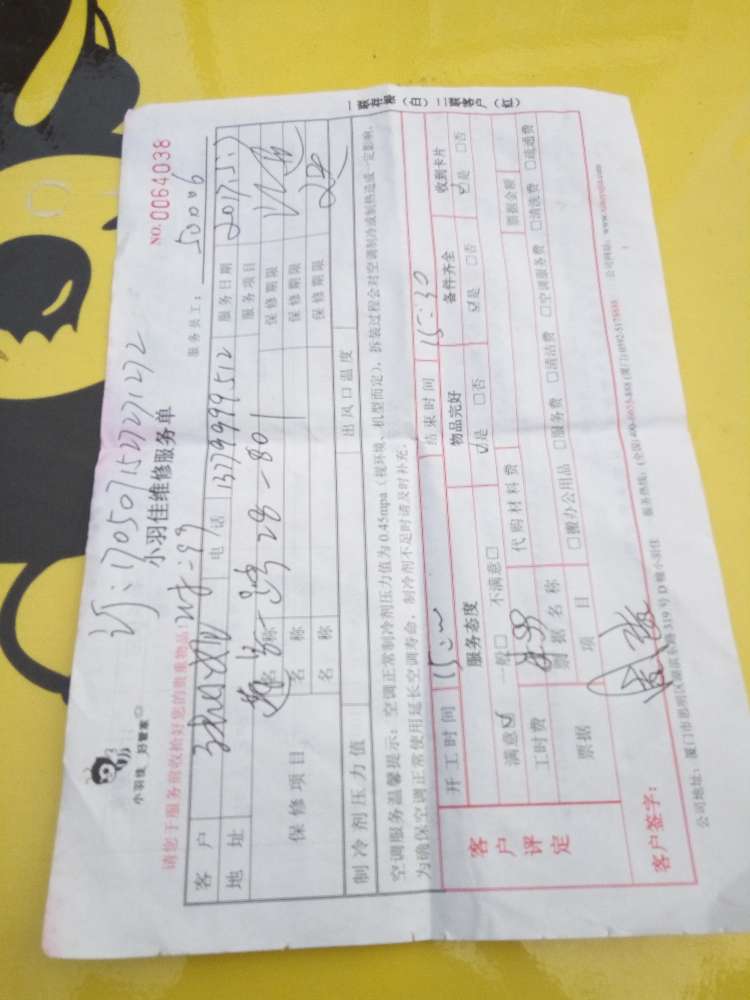 小羽佳 好管家
小羽佳维修服务单
NO.0064038
请您于服务前收拾好您的贵重物品!
服务员工: 50006
客户
电话 13779999512
服务日期 2017.5.7
地址 28-801
服务项目
保修项目
名称 保修期限
名称 保修期限
名称 保修期限
制冷剂压力值
出风口温度
空调服务温馨提示:空调正常制冷剂压力值为0.45mpa(视环境、机型而定),拆装过程会对空调制冷或制热造成一定影响,
为确保空调正常使用延长空调寿命,制冷剂不足时请及时补充。
客户评定
开工时间
结束时间 15:30
服务态度 物品完好 备件齐全 收到卡片
满意☑ 一般□ 不满意□ ☑是 □否 ☑是 □否 ☑是 □否
工时费 代购材料费
票据 票据名称 票据金额
项目 □搬办公用品 □服务费 □清洁费 □空调服务费 □清洗费 □疏通费
客户签字:
公司地址:厦门市思明区湖滨东路319号D幢小羽佳 服务热线:
公司网址:
一联存根(白)二联客户(红)